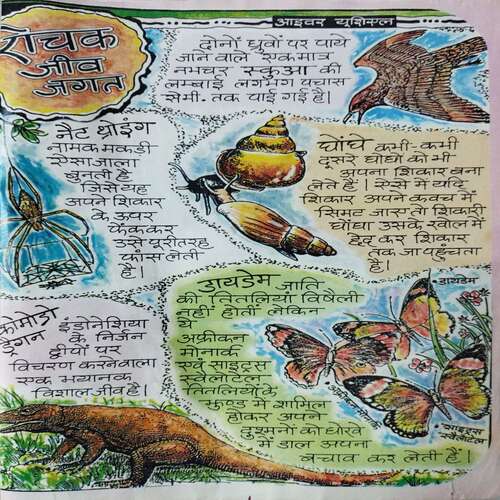 रोचक
जीव
जगत
आइवर यूशिएल
दोनों ध्रुवों पर पाये
जाने वाले एकमात्र
नभचर स्कुआ की
लम्बाई लगभग पचास
सेमी. तक पाई गई है।
नैट थ्रोइंग
नामक मकड़ी
ऐसा जाला
बुनती है
जिसे यह
अपने शिकार
के ऊपर
फेंककर
उसे पूरी तरह
फांस लेती
है।
घोंघे कभी-कभी
दूसरे घोंघों को भी
अपना शिकार बना
लेते हैं। ऐसे में यदि
शिकार अपने कवच में
सिमट जाए तो शिकारी
घोंघा उसके खोल में
छेद कर शिकार
तक जा पहुंचता
है।
कोमोडो
ड्रैगन
इंडोनेशिया
के निर्जन
द्वीपों पर
विचरण करनेवाला
एक भयानक
विशाल जीव है।
डायडेम जाति
की तितलियां विषैली
नहीं होतीं लेकिन
ये
अफ्रीकन
मोनार्क
एवं साइट्रस
स्वैलोटेल
तितलियों के
झुण्ड में शामिल
होकर अपने
दुश्मनों को धोखे
में डाल अपना
बचाव कर लेती हैं।
डायडेम
साइट्रस
स्वैलोटेल